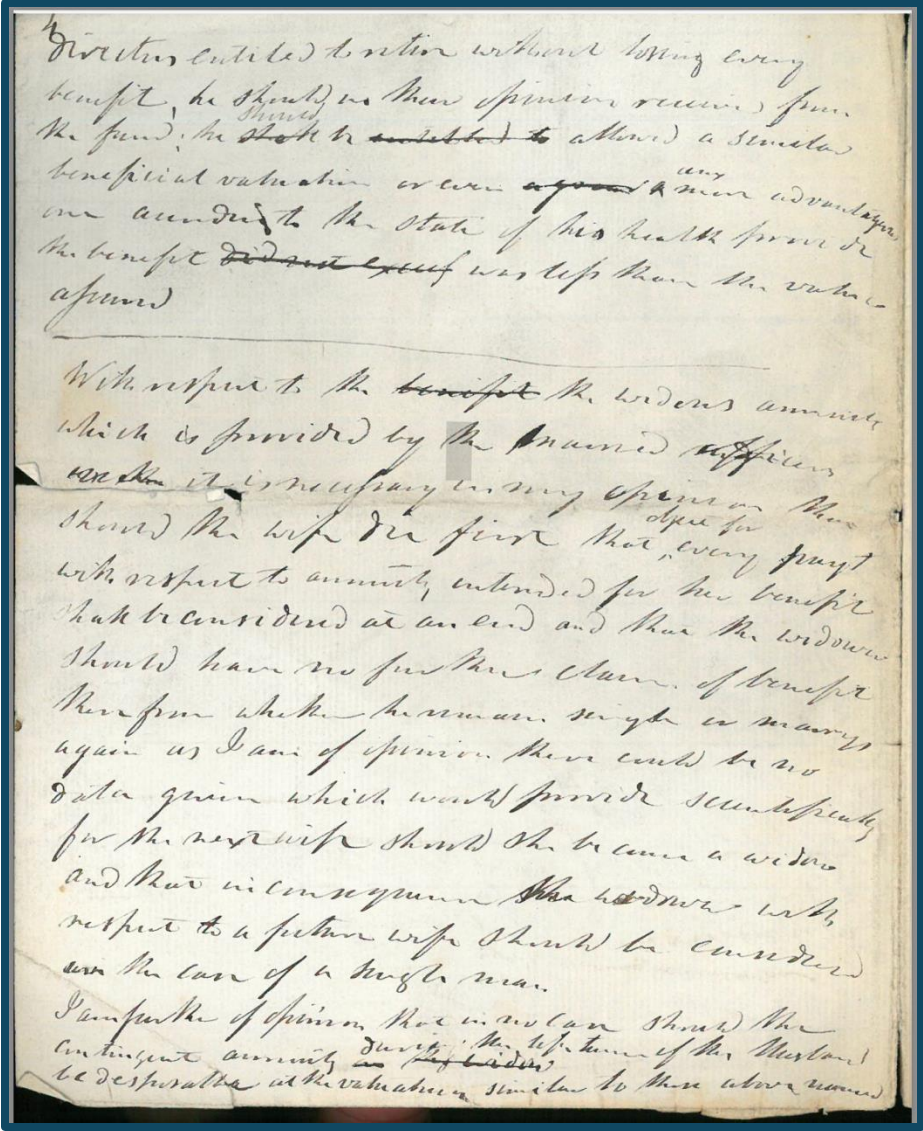 4
Directors entitled to retire without losing every
benefit, he should in their opinion receive from
the fund, he should be allowed a similar
beneficial valuation or even any more advantageous
one according to the state of his health provide
the benefit did not exceed was less than the value
assumed
With respect to the benefit the widows annuity
which is provided by the married officers
it is necessary in my opinion that
should the wife die first that every paymt
with respect to annuity intended for her benefit
shall be considered at an end and that the widower
should have no further claim of benefit
therefrom whether he remain single or marrys
again as I am of opinion there could be no
data given which would provide scientifically
for the next wife should she become a widow
and that in consequence the widower with
respect to a future wife should be considered
in the case of a single man
I am further of opinion that in no case should the
contingent annuity during the life time of the Husband
be desposable at the valuation similar to those above named